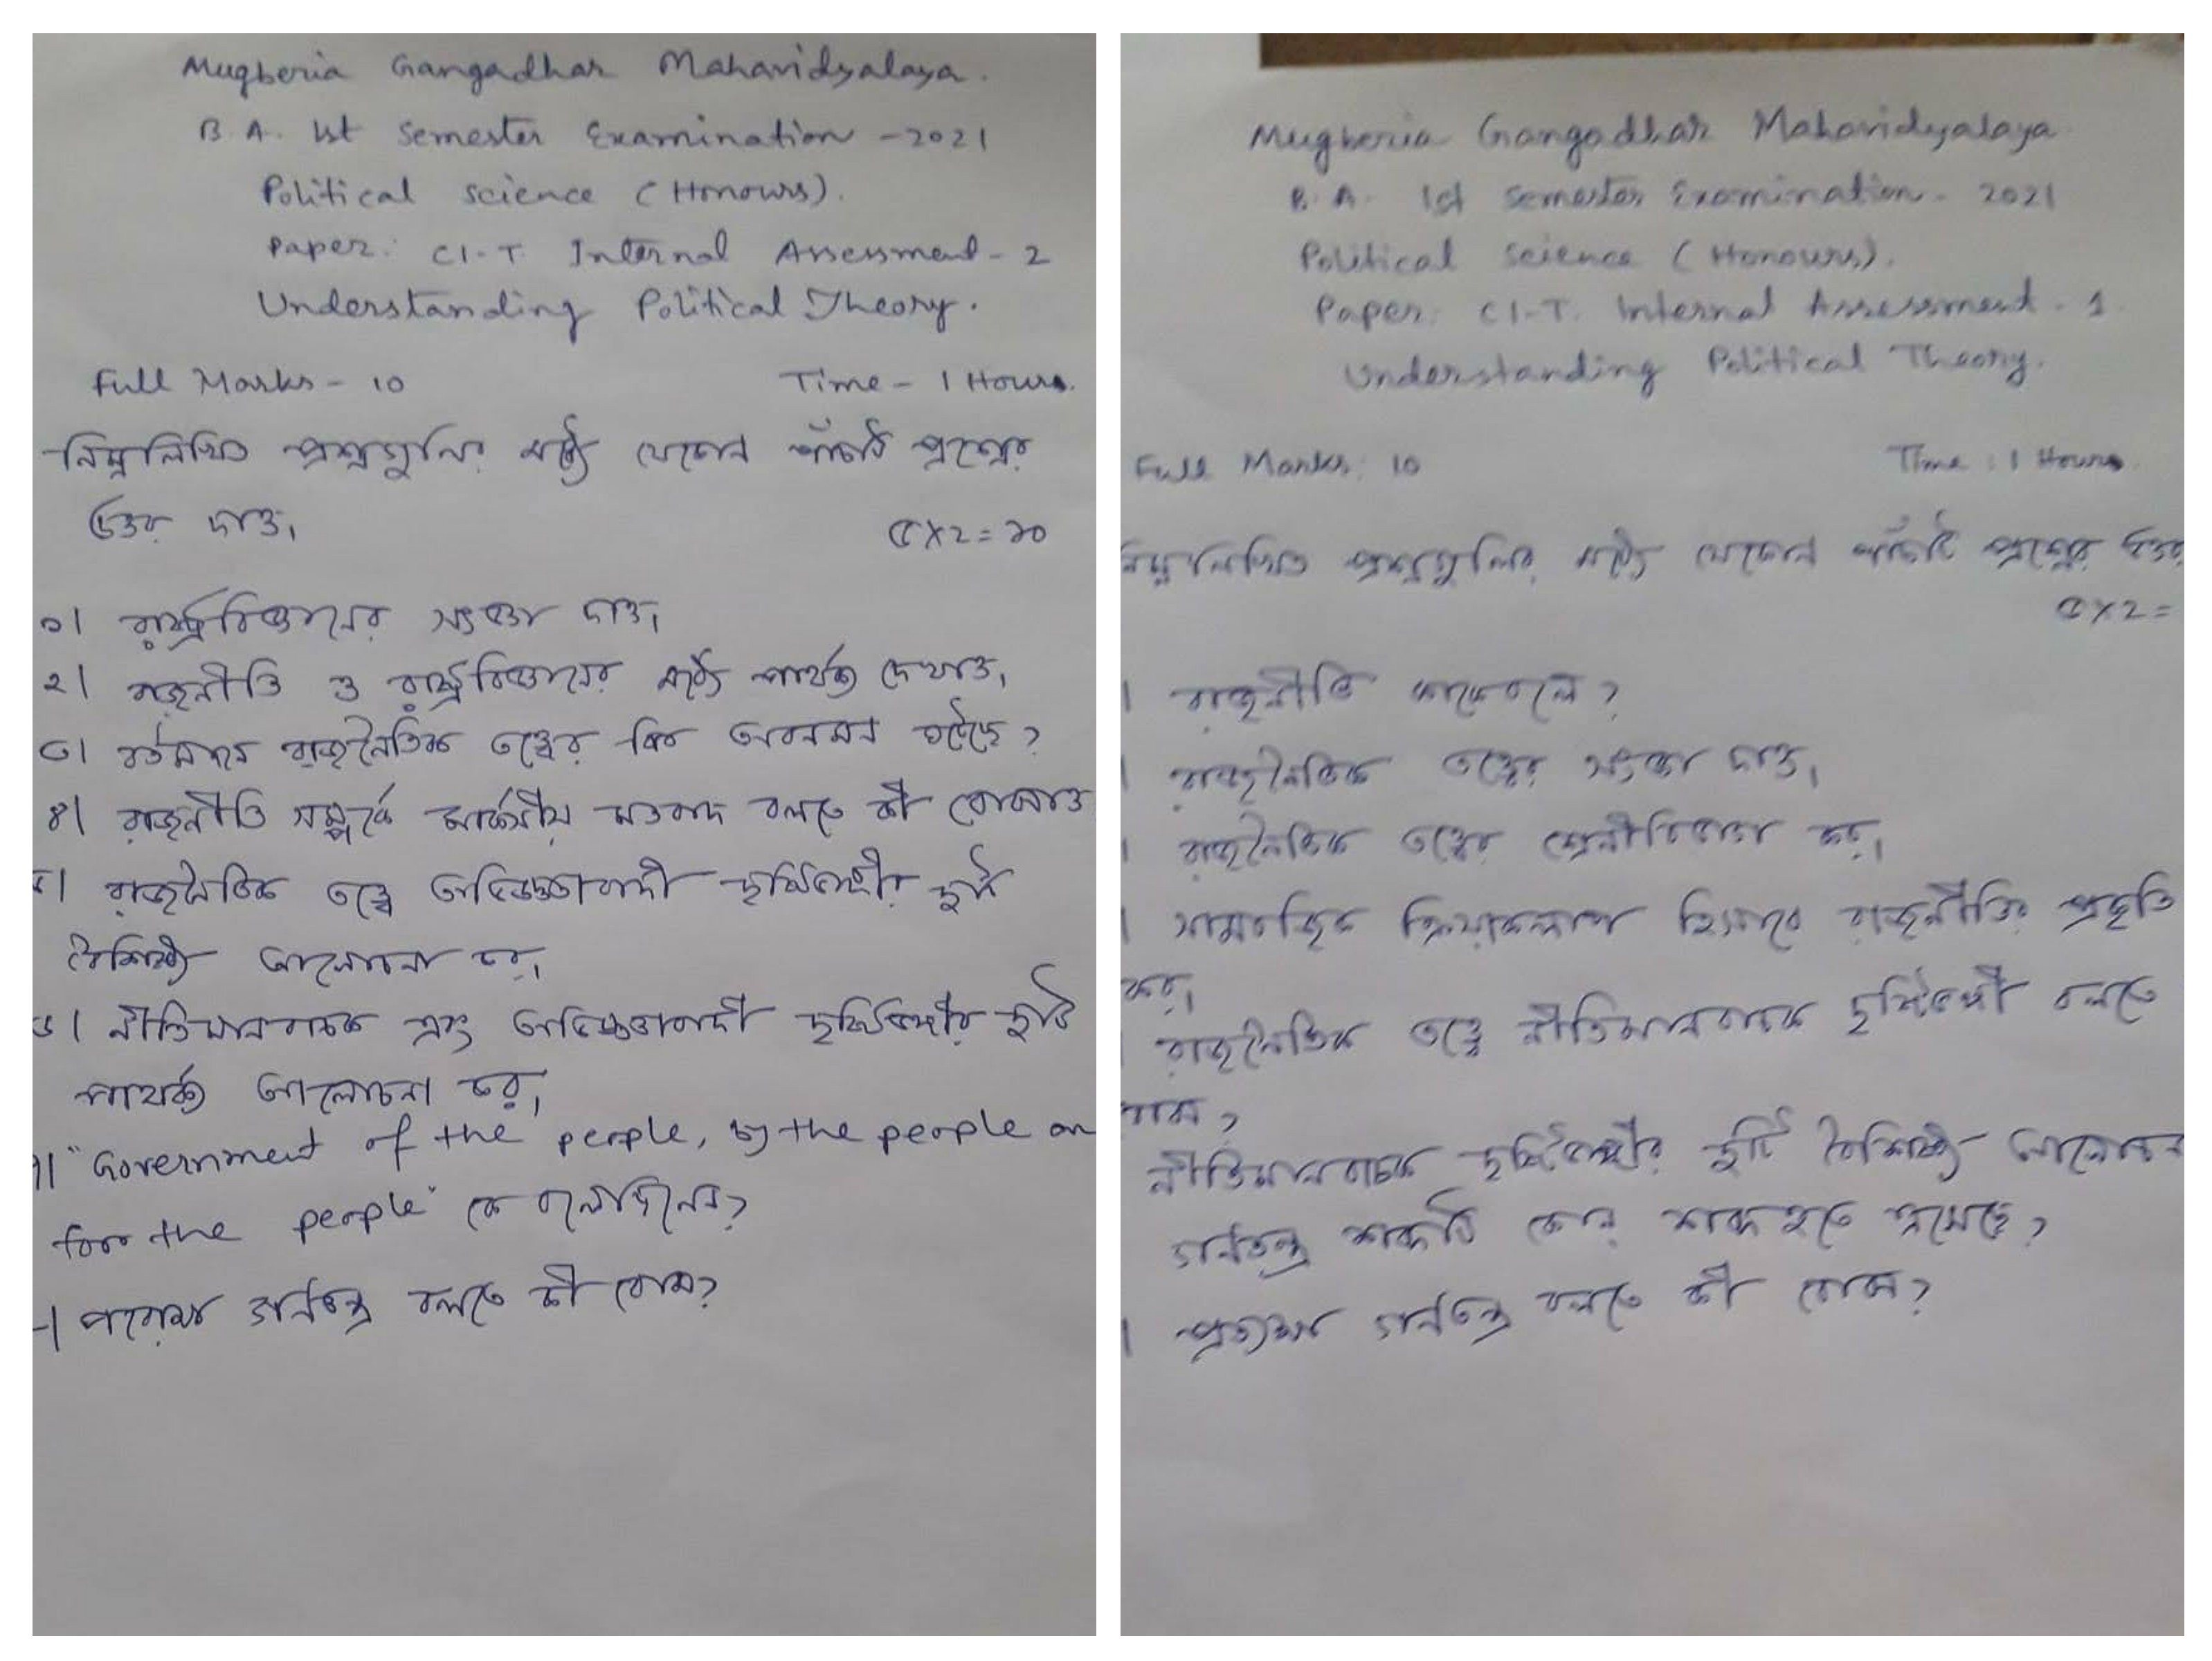 Mugberia Gangadhar Mahavidyalaya.
B.A. 1st Semester Examination - 2021
Political Science (Honours).
Paper: C1-T Internal Assessment - 2
Understanding Political Theory.
Full Marks - 10 Time - 1 Hours.
নিম্নলিখিত প্রশ্নগুলির মধ্যে যেকোন পাঁচটি প্রশ্নের
উত্তর দাও। ৫X২=১০
১। রাষ্ট্রবিজ্ঞানের সংজ্ঞা দাও।
২। রাজনীতি ও রাষ্ট্রবিজ্ঞানের মধ্যে পার্থক্য দেখাও।
৩। বর্তমানে রাজনৈতিক তত্ত্বের কি অবনমন ঘটেছে?
৪। রাজনীতি সম্পর্কে মার্কসীয় মতবাদ বলতে কী বোঝাও
৫। রাজনৈতিক তত্ত্বে অভিজ্ঞতাবাদী দৃষ্টিভঙ্গীর দুটি
বৈশিষ্ট্য আলোচনা কর।
৬। নীতিমানবাচক এবং অভিজ্ঞতাবাদী দৃষ্টিভঙ্গীর দুটি
পার্থক্য আলোচনা কর।
৭। "Government of the people, by the people an
for the people" কে বলেছিলেন?
পরোক্ষ গণতন্ত্র বলতে কী বোঝ?
Mugberia Gangadhar Mahavidyalaya
B.A. 1st Semester Examination - 2021
Political Science (Honours).
Paper: C1-T. Internal Assessment - 1
Understanding Political Theory.
Full Marks: 10 Time: 1 Hours
নিম্নলিখিত প্রশ্নগুলির মধ্যে যেকোন পাঁচটি প্রশ্নের উত্তর
৫X২=
। রাজনীতি কাকে বলে?
। রাজনৈতিক তত্ত্বের সংজ্ঞা দাও।
। রাজনৈতিক তত্ত্বের শ্রেনীবিভাগ কর।
। সামাজিক ক্রিয়াকলাপ হিসাবে রাজনীতির প্রকৃতি
কর।
রাজনৈতিক তত্ত্বে নীতিমানবাচক দৃষ্টিভঙ্গী বলতে
বোঝ?
নীতিমানবাচক দৃষ্টিভঙ্গীর দুটি বৈশিষ্ট্য আলোচনা
গণতন্ত্র শব্দটি কোন্ শব্দ হতে এসেছে?
। প্রত্যক্ষ গণতন্ত্র বলতে কী বোঝ?